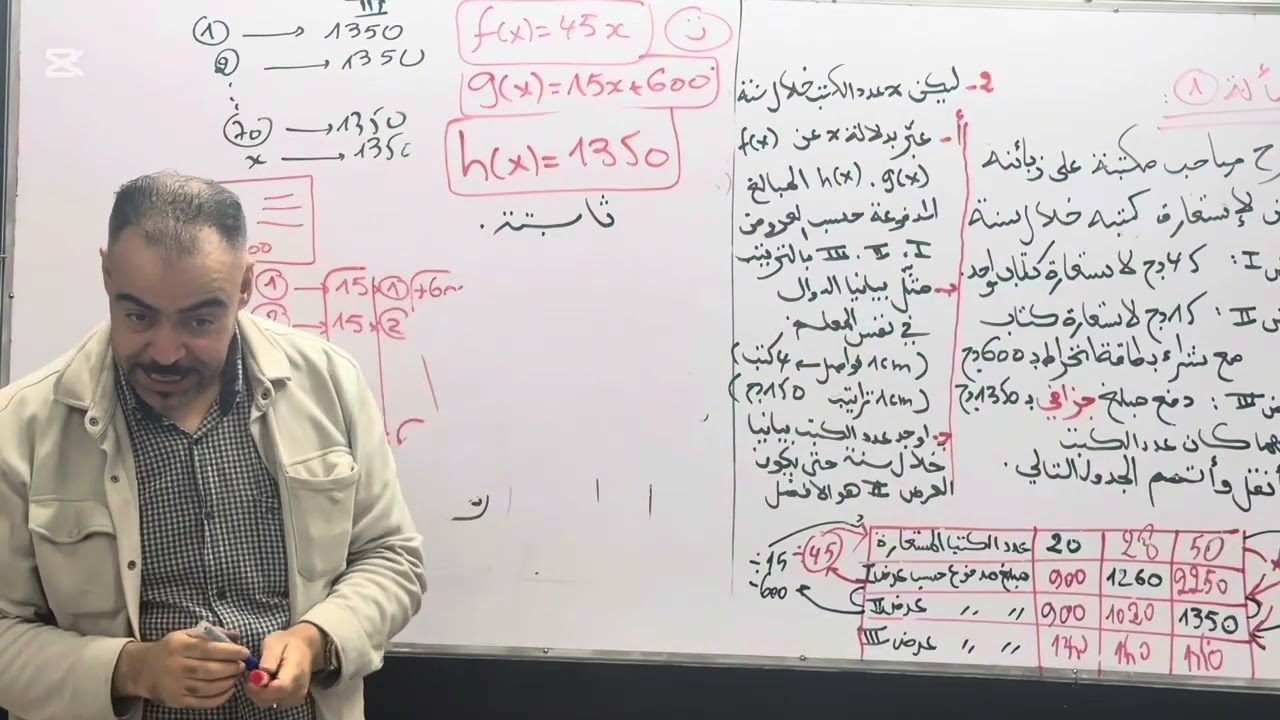 ① → 1350
② → 1350
→ 1350
x → 1350
① → 15 × ① +6
→ 15 × ②
f(x) = 45x
g(x) = 15x + 600
h(x) = 1350
ثابتة.
2- ليكن x عدد الكتب خلال سنة
أ- عبّر بدلالة x عن f(x)
g(x) . h(x) المبالغ
المدفوعة حسب العروض
I . II . III بالترتيب
مثّل بيانيا الدوال
في نفس المعلم
(1cm فواصل → 4 كتب)
(1cm تراتيب 150 دج)
اوجد عدد الكتب بيانيا
خلال سنة حتى يكون
العرض II هو الافضل
①
صاحب مكتبة على زبائنه
لإستعارة كتبه خلال سنة
I : 45 دج لاستعارة كتاب واحد.
II : 15 دج لاستعارة كتاب
مع شراء بطاقة انخراط بـ 600 دج
III : دفع مبلغ جزافي بـ 1350 دج
كان عدد الكتب
أنقل وأتمم الجدول التالي .
عدد الكتب المستعارة 20 28 50
مبلغ مدفوع حسب عرض I 900 1260 2250
〃 〃 عرض II 900 1020 1350
〃 〃 عرض III
45
÷15
-600